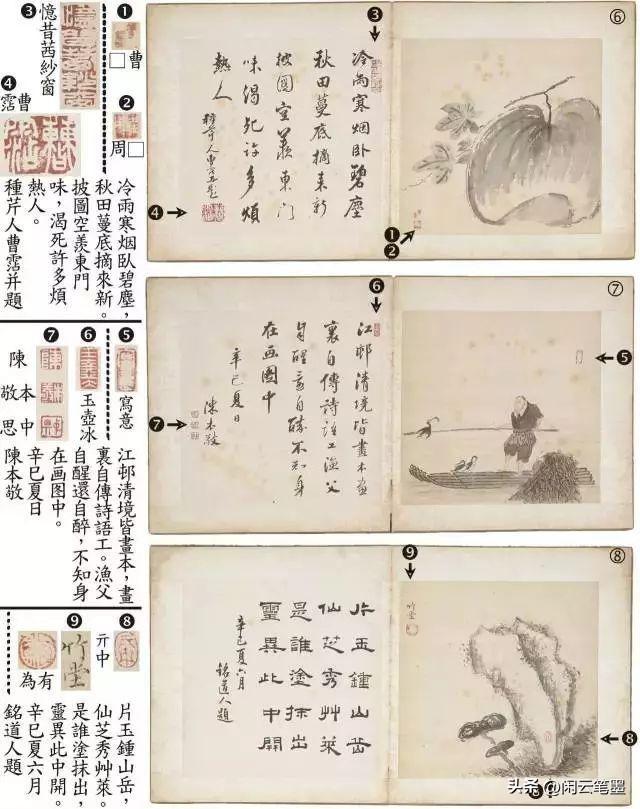 ❶
□曹
❷
周□
❸
憶昔茜紗窗
❹
曹霑
冷雨寒烟臥碧塵，
秋田蔓底摘來新。
披圖空羨東門
味，渴死許多煩
熱人。
種芹人曹霑并題
❸
冷雨寒烟卧碧塵
秋田蔓底摘来新
披圖空羨東門
味渴死許多煩
熱人
種芹人曹霑並題
❹
⑥
❶
❷
❺
寫意
❻
玉壺冰
❼
陳本敬中思
江邨清境皆畫本，畫
裏自傳詩語工。漁父
自醒還自醉，不知身
在画图中。
辛巳夏日
陳本敬
❻
江邨清境皆畫本畫
裏自傳詩語工漁父
自醒還自醉不知身
在画圖中
辛巳夏日
陳本敬
❼
⑦
❺
❽
亓中
❾
有為
片玉鍾山岳，
仙芝秀艸萊。
是誰塗抹出，
靈異此中開。
辛巳夏六月
銘道人題
片玉鍾山岳
仙芝秀艸萊
是誰塗抹出
靈異此中開
辛巳夏六月
銘道人題
❾
⑧
❽
❽
头条 @闲云笔墨